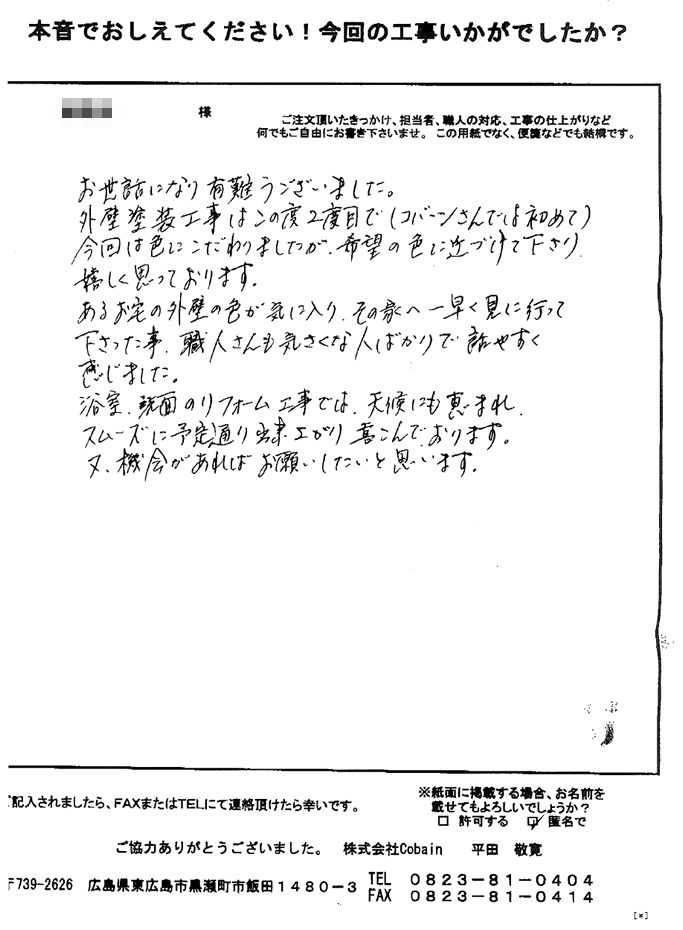 本音でおしえてください！今回の工事いかがでしたか？
様
ご注文頂いたきっかけ、担当者、職人の対応、工事の仕上がりなど
何でもご自由にお書き下さいませ。この用紙でなく、便箋などでも結構です。
お世話になり有難うございました。
外壁塗装工事はこの度2度目で(コバーンさんでは初めて)
今回は色にこだわりましたが、希望の色に近づけて下さり、
嬉しく思っております。
あるお宅の外壁の色が気に入り、その家へ一早く見に行って
下さった事、職人さんも気さくな人ばかりで話やすく
感じました。
浴室、面のリフォーム工事では、天候にも恵まれ、
スムーズに予定通り出来上がり喜こんでおります。
又、機会があればお願いしたいと思います。
ご記入されましたら、FAXまたはTELにて連絡頂けたら幸いです。
※紙面に掲載する場合、お名前を
載せてもよろしいでしょうか？
□ 許可する ☑ 匿名で
ご協力ありがとうございました。 株式会社Cobain 平田 敬寛
〒739-2626 広島県東広島市黒瀬町市飯田１４８０－３
TEL ０８２３－８１－０４０４
FAX ０８２３－８１－０４１４
[*]